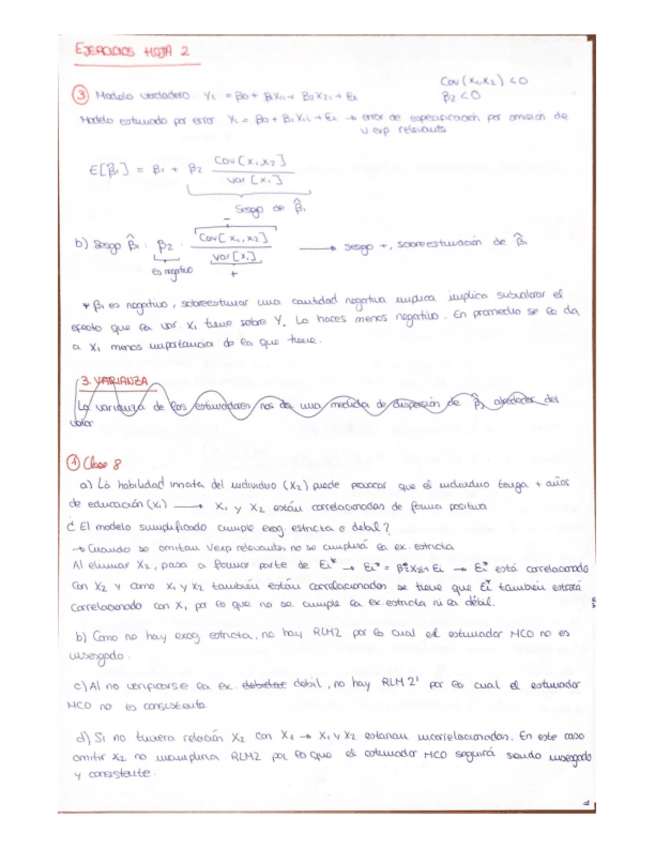 EJERCICIOS HOJA 2
③ Modelo verdadero: Yi = β0 + β1X1i + β2X2i + Ei
Cov(X1,X2) < 0
β2 < 0
Modelo estimado por error Yi = β0 + β1X1i + Ei → error de especificación por omisión de
v exp. relevante
E[β̂1] = β1 + β2 Cov[X1,X2] / Var[X1]
Sesgo de β̂1
b) Sesgo β̂1 : β2 · Cov[X1,X2] / Var[X1] → sesgo +, sobreestimación de β̂1
es negativo - +
* β1 es negativo, sobreestimar una cantidad negativa implica implica subvalorar el
efecto que la var. X1 tiene sobre Y. Lo haces menos negativo. En promedio se le da
a X1 menos importancia de la que tiene.
3. VARIANZA
La varianza de los estimadores nos da una medida de dispersión de β̂j alrededor del
valor
① Clase 8
a) La habilidad innata del individuo (X2) puede provocar que el individuo tenga + años
de educación (X1) → X1 y X2 están correlacionadas de forma positiva
¿El modelo simplificado cumple exog. estricta o debil?
→ Cuando se omitan Vexp relevantes, no se cumplirá la ex. estricta
Al eliminar X2, pasa a formar parte de Ei* → Ei* = β2X2i + Ei → Ei* está correlacionado
con X2 y como X1 y X2 también están correlacionados se tiene que Ei* también estará
correlacionado con X1, por lo que no se cumple la ex. estricta ni la débil.
b) Como no hay exog estricta, no hay RLM2 por lo cual el estimador MCO no es
insesgado.
c) Al no verificarse la ex. debil, no hay RLM2' por lo cual el estimador
MCO no es consistente
d) Si no tuviera relación X2 con X1 → X1 y X2 estarian incorrelacionadas. En este caso
omitir X2 no incumpliria RLM2 por lo que el estimador MCO seguirá siendo insesgado
y consistente.